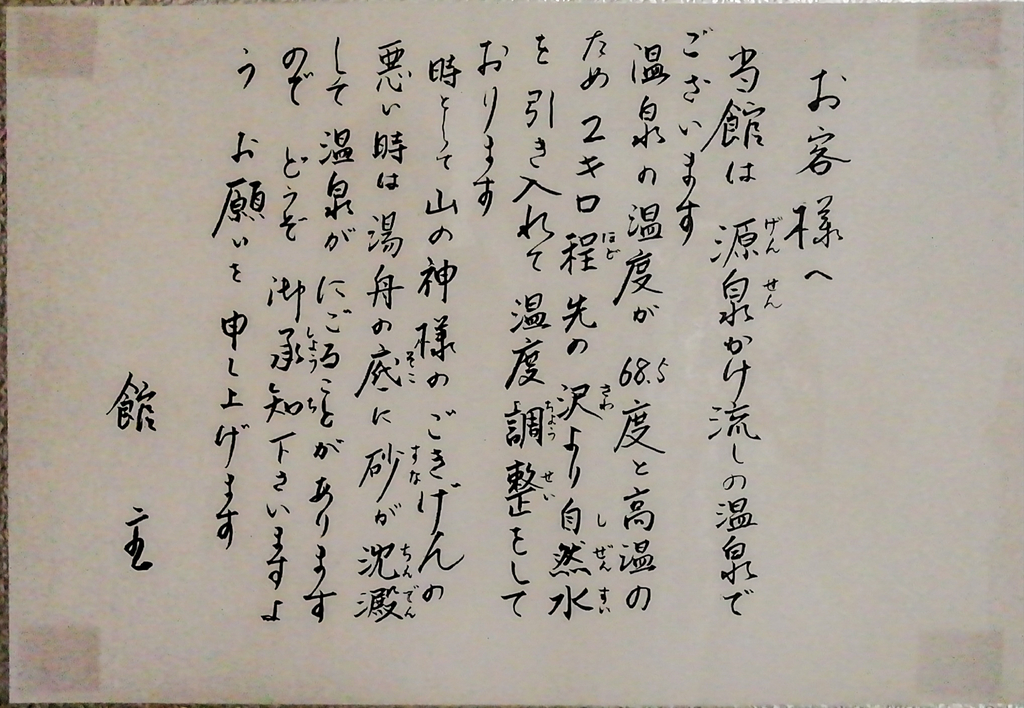 お客様へ
当館は 源泉かけ流しの温泉で
ございます
温泉の温度が 68.5度と高温の
ため 2キロ程先の沢より自然水
を引き入れて温度調整をして
おります
時として山の神様のごきげんの
悪い時は湯舟の底に砂が沈澱
して温泉がにごることがあります
のでどうぞ 御承知下さいますよ
う お願いを申し上げます
館主